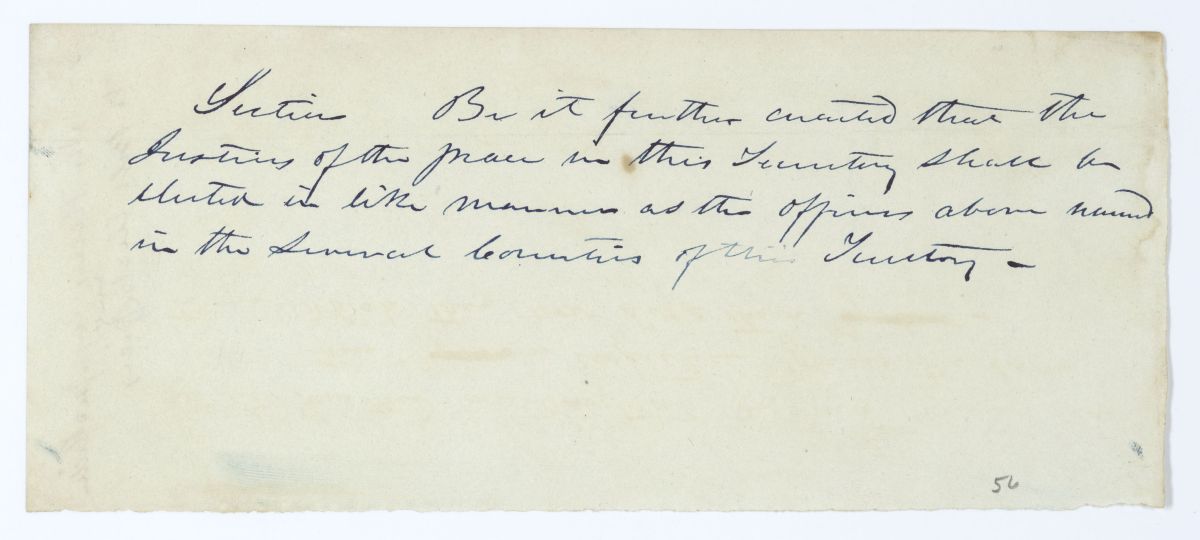 Section Be it further enacted that the
Justices of the peace in this Territory shall be
elected in like manner as the officers above named
in the several Counties of this Territory -
56